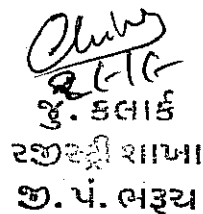 જુ. કલાર્ક
રજીસ્ટ્રી શાખા
જી. પં. ભરૂચ